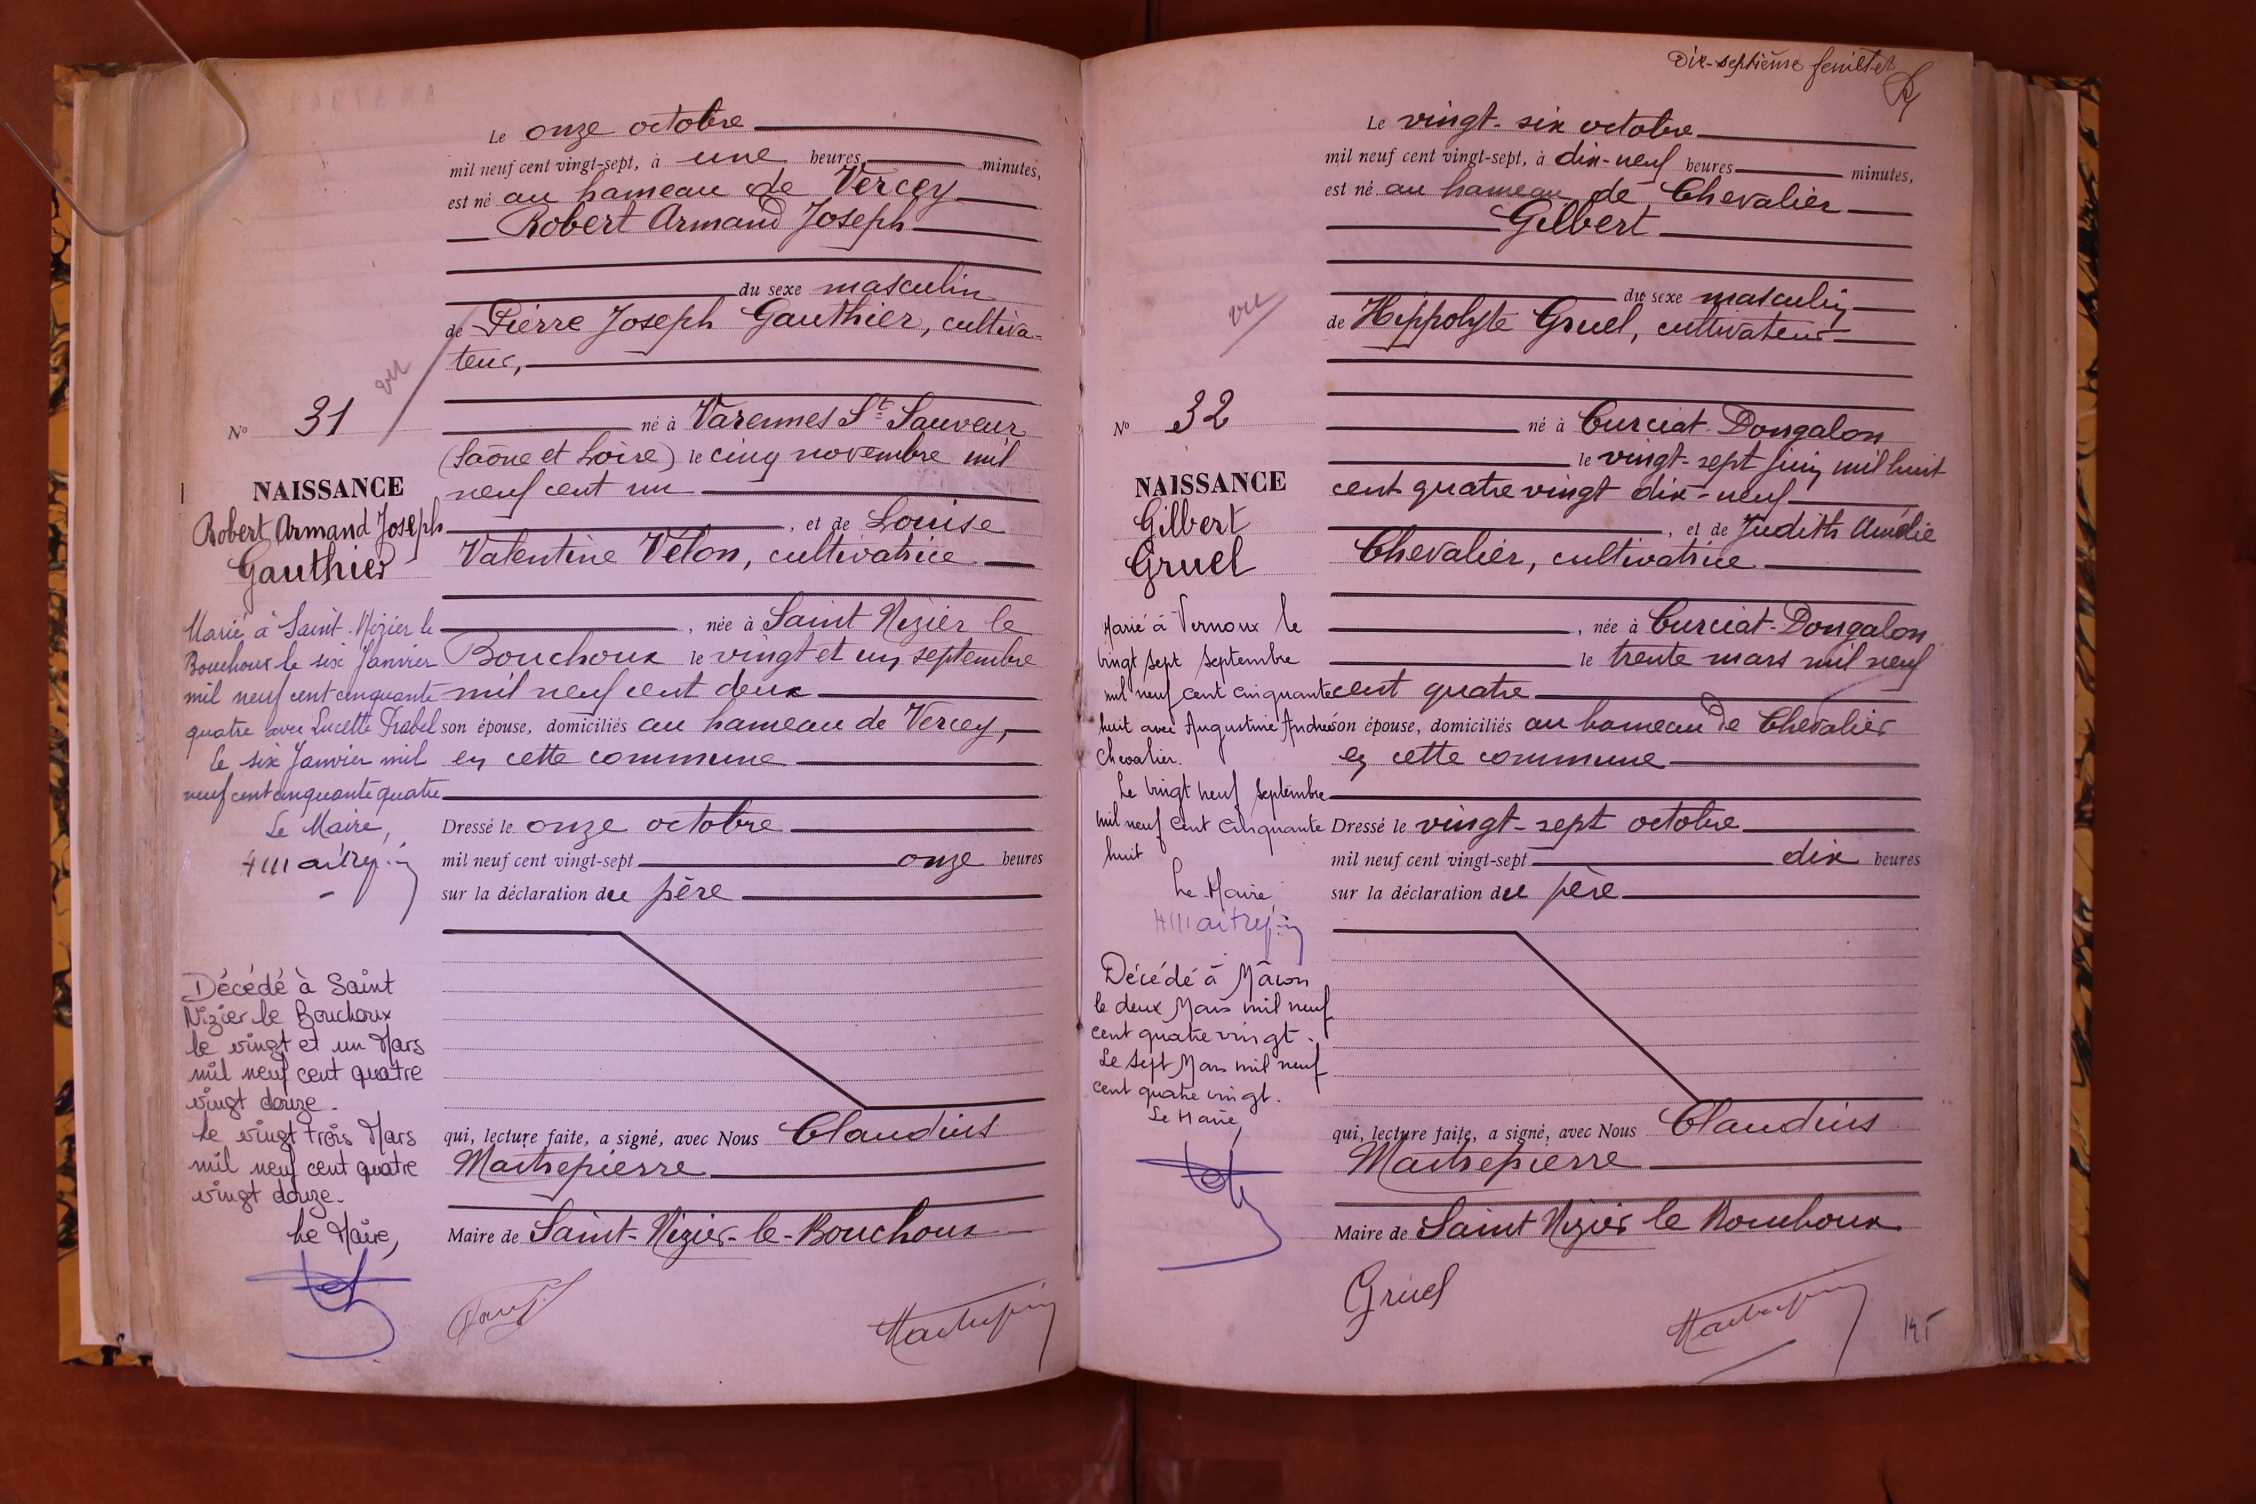 Le onze octobre
mil neuf cent vingt-sept, à une heures minutes,
est né au hameau de Vercey
Robert Armand Joseph
du sexe masculin
de Pierre Joseph Gauthier, cultiva-
teur,
né à Varennes St Sauveur
(Saône et Loire) le cinq novembre mil
neuf cent un
, et de Louise
Valentine Velon, cultivatrice
, née à Saint Nizier le
Bouchoux le vingt et un septembre
mil neuf cent deux
son épouse, domiciliés au hameau de Vercey,
en cette commune
Dressé le onze octobre
mil neuf cent vingt-sept onze heures
sur la déclaration du père
qui, lecture faite, a signé, avec Nous Claudius
Maitrepierre
Maire de Saint-Nizier-le-Bouchoux
vu
No 31
NAISSANCE
Robert Armand Joseph
Gauthier
Marié à Saint-Nizier le
Bouchoux le six Janvier
mil neuf cent cinquante
quatre avec Lucette
le six Janvier mil
neuf cent cinquante quatre
Le Maire,
Décédé à Saint
Nizier le Bouchoux
le vingt et un Mars
mil neuf cent quatre
vingt douze.
Le vingt trois Mars
mil neuf cent quatre
vingt douze.
Le Maire,
Dix-septième feuillet
Le vingt-six octobre
mil neuf cent vingt-sept, à dix-neuf heures minutes,
est né au hameau de Chevalier
Gilbert
du sexe masculin
de Hippolyte Gruel, cultivateur
né à Curciat-Dongalon
le vingt-sept juin mil huit
cent quatre vingt dix-neuf
, et de Judith Amélie
Chevalier, cultivatrice
, née à Curciat-Dongalon
le trente mars mil neuf
cent quatre
son épouse, domiciliés au hameau de Chevalier
en cette commune
Dressé le vingt-sept octobre
mil neuf cent vingt-sept dix heures
sur la déclaration du père
qui, lecture faite, a signé, avec Nous Claudius
Maitrepierre
Maire de Saint Nizier le Bouchoux
Gruel
vu
No 32
NAISSANCE
Gilbert
Gruel
Marié à Vernoux le
vingt sept septembre
mil neuf cent cinquante
huit avec Augustine Andrée
Chevalier.
Le vingt neuf septembre
mil neuf cent cinquante
huit
Le Maire,
Décédé à Mâcon
le deux Mars mil neuf
cent quatre vingt.
Le sept Mars mil neuf
cent quatre vingt.
Le Maire,